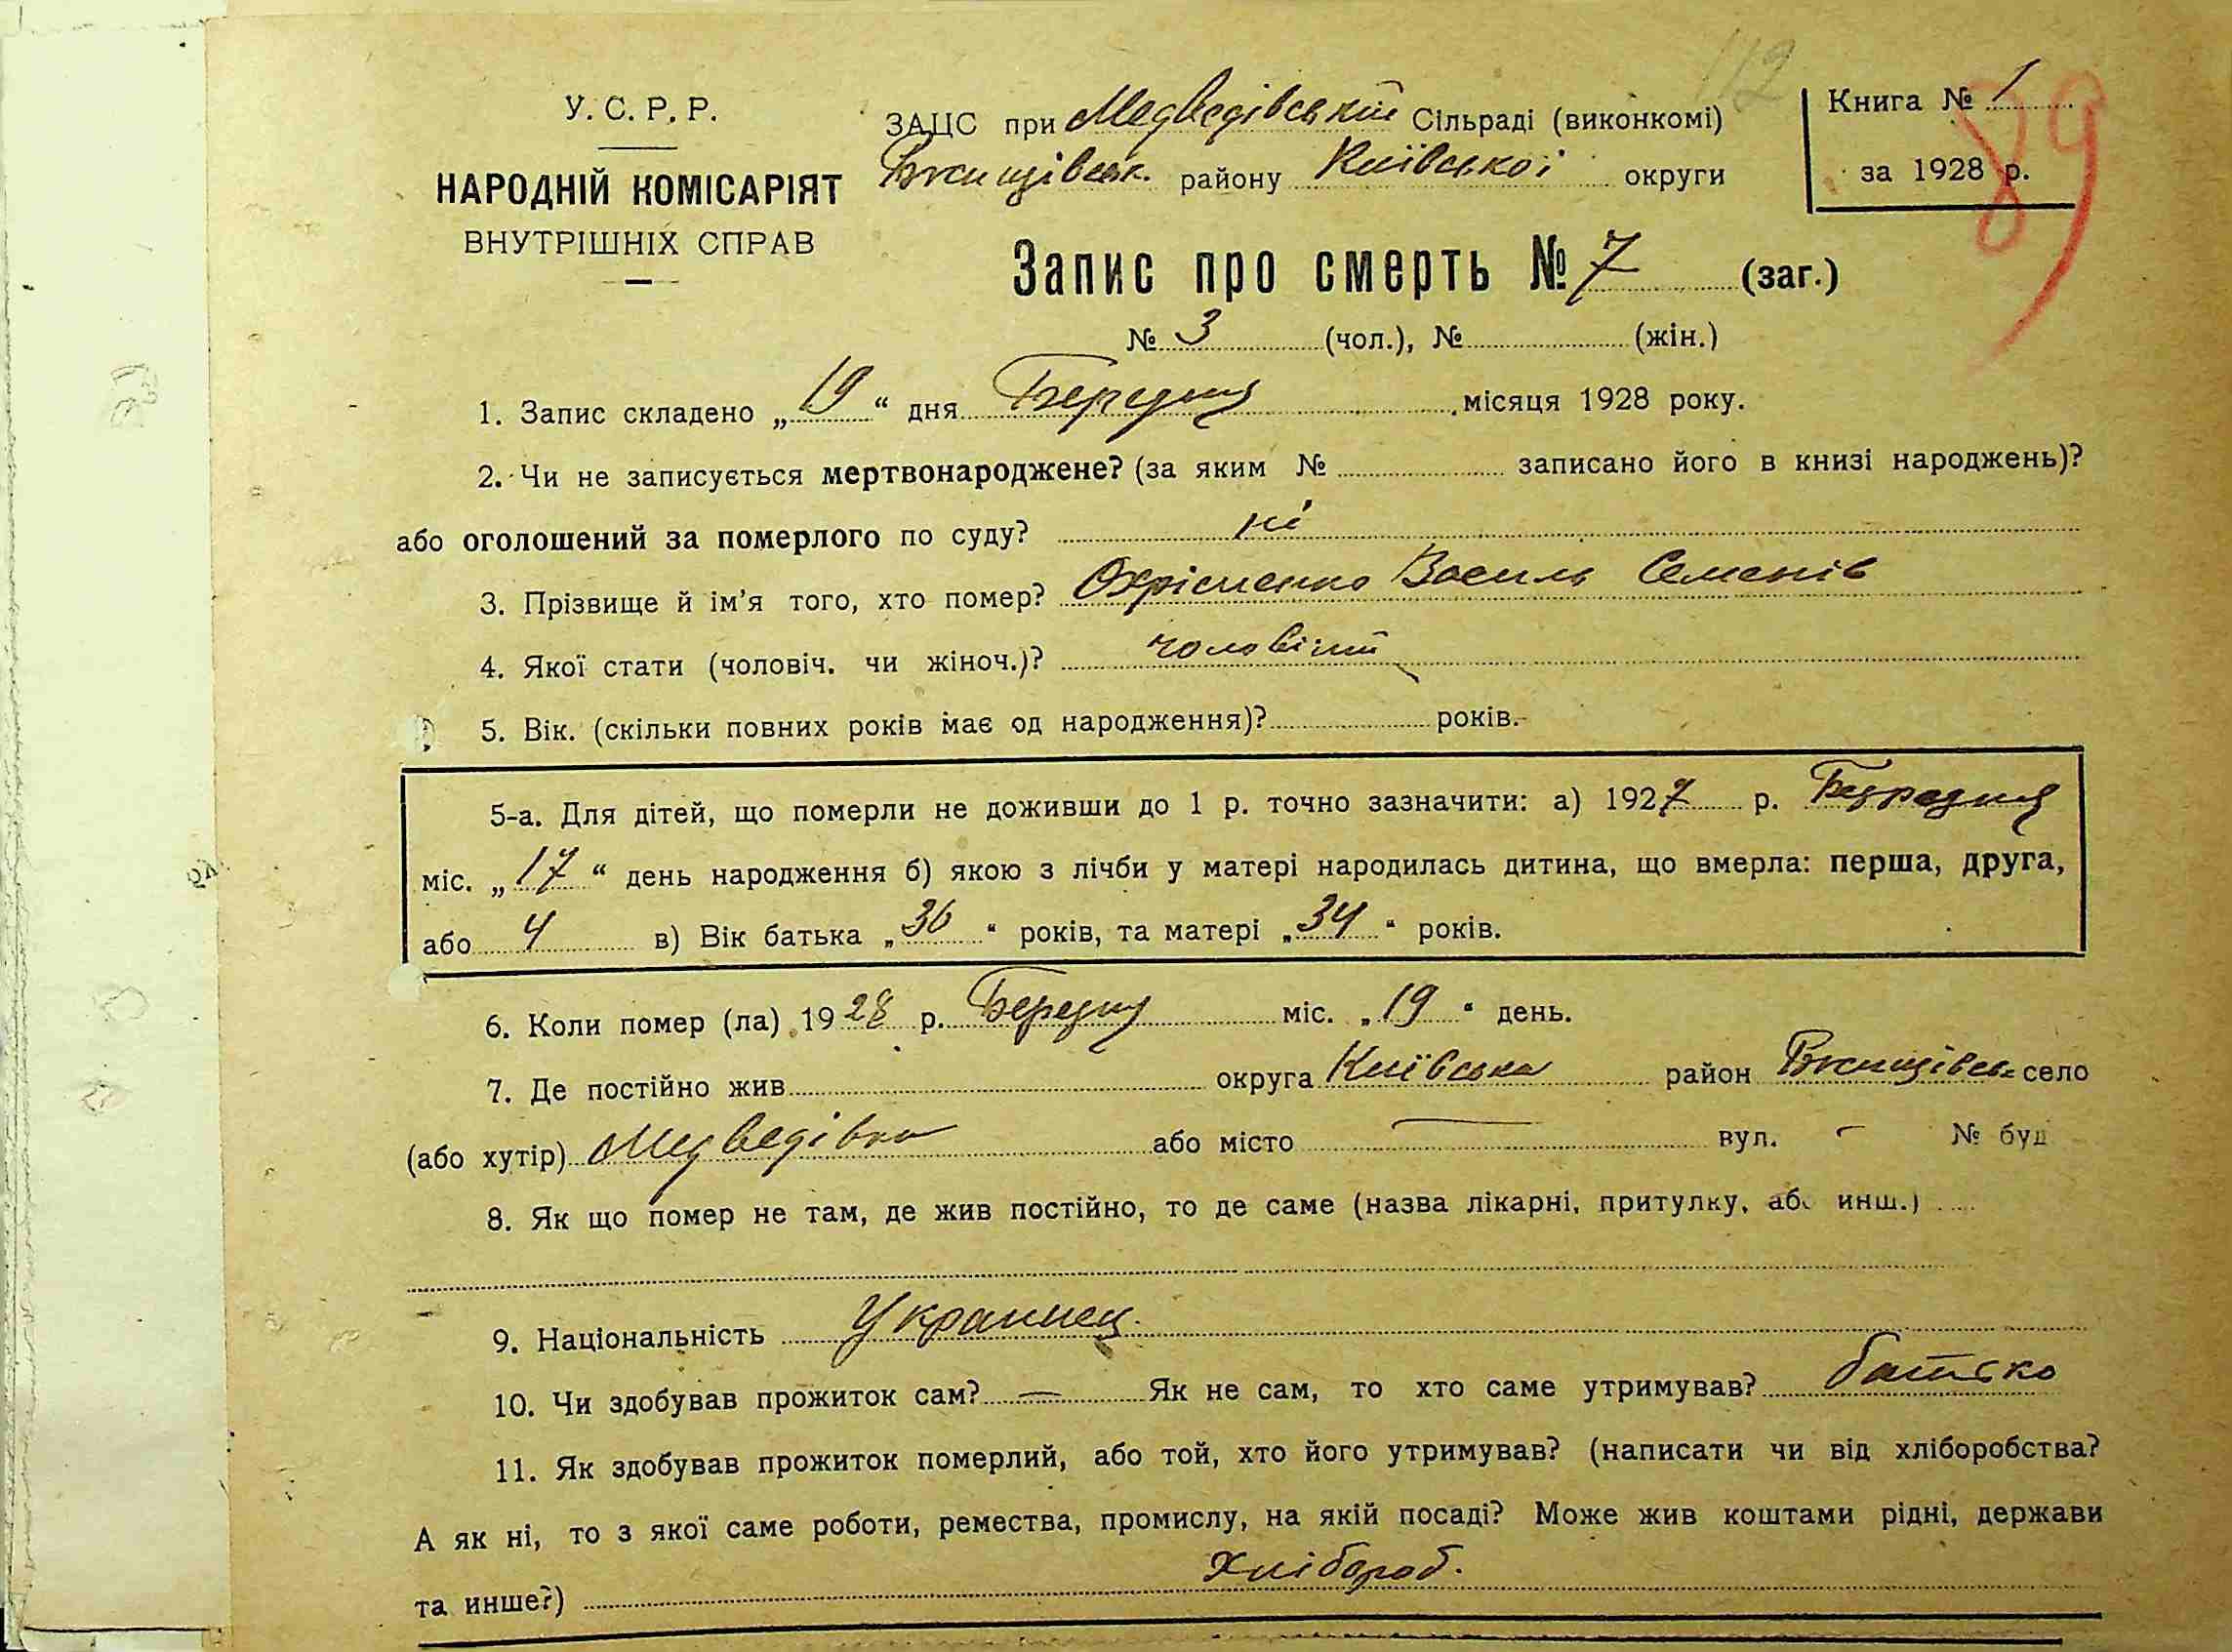 112
У. С. Р. Р.
НАРОДНІЙ КОМІСАРІЯТ
ВНУТРІШНІХ СПРАВ
ЗАЦС при Медведівській Сільраді (виконкомі)
Ржищівськ. району Київської округи
Книга № 1
за 1928 р.
89
Запис про смерть № 7 (заг.)
№ 3 (чол.), № (жін.)
1. Запис складено „19“ дня Березня місяця 1928 року.
2. Чи не записується мертвонароджене? (за яким № записано його в книзі народжень)?
або оголошений за померлого по суду? ні
3. Прізвище й ім’я того, хто помер? Охріменко Василь Семенів
4. Якої стати (чоловіч. чи жіноч.)?
5. Вік. (скільки повних років має од народження)? років.
5-а. Для дітей, що померли не доживши до 1 р. точно зазначити: а) 1927 р. Березня
міс. „17“ день народження б) якою з лічби у матері народилась дитина, що вмерла: перша, друга,
або 4 в) Вік батька „36“ років, та матері „34“ років.
6. Коли помер (ла) 1928 р. Березня міс. „19“ день.
7. Де постійно жив округа Київська район Ржищівськ село
(або хутір) Медведівка або місто — вул. - № буд
8. Як що помер не там, де жив постійно, то де саме (назва лікарні, притулку, або инш.)
9. Національність Украинец.
10. Чи здобував прожиток сам? — Як не сам, то хто саме утримував? батько
11. Як здобував прожиток померлий, або той, хто його утримував? (написати чи від хліборобства?
А як ні, то з якої саме роботи, ремества, промислу, на якій посаді? Може жив коштами рідні, держави
та инше?) Хлібороб.